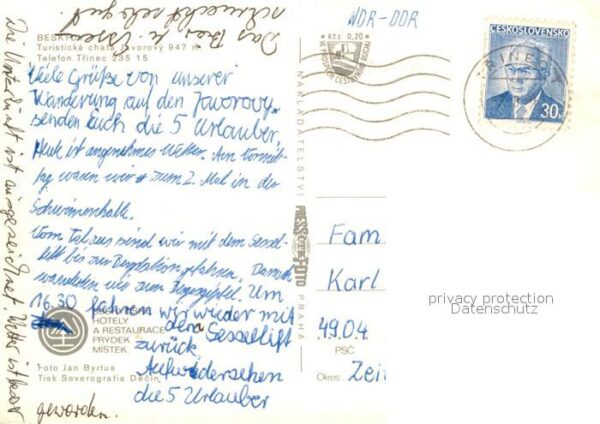 BESK
Turistická chata Javorový 947 m
Telefon Třinec 235 15
Das Bier u. Essen
schmeckt sehr gut
Viele Grüße von unserer
Wanderung auf den Javorovy
senden Euch die 5 Urlauber.
Heute ist angenehmes Wetter. Am Vormit-
tag waren wir zum 2. Mal in der
Schwimmhalle.
Vom Tal aus sind wir mit dem Sessel-
lift bis zur Bergstation gefahren. Danach
wanderten wir zum Um
16.30 fahren wir wieder mit
dem Sessellift
zurück.
Aufwiedersehen
die 5 Urlauber
HOTELY
A RESTAURACE
FRÝDEK
MÍSTEK
Foto Jan Byrtus
Tisk Severografia Děčín
Die Unterkunft ist ausgezeichnet. Wetter ist besser
geworden.
NAKLADATELSTVÍ
PRESSFOTO
PRAHA
NDR-DDR
Kčs 0,20
ČESKOSLOVENSKO
30h
TŘINEC
Fam
Karl
4904
PSČ
Okres: Zei
privacy protection
Datenschutz